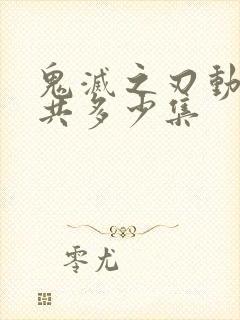 鬼滅之刃動
共多少集
零尤